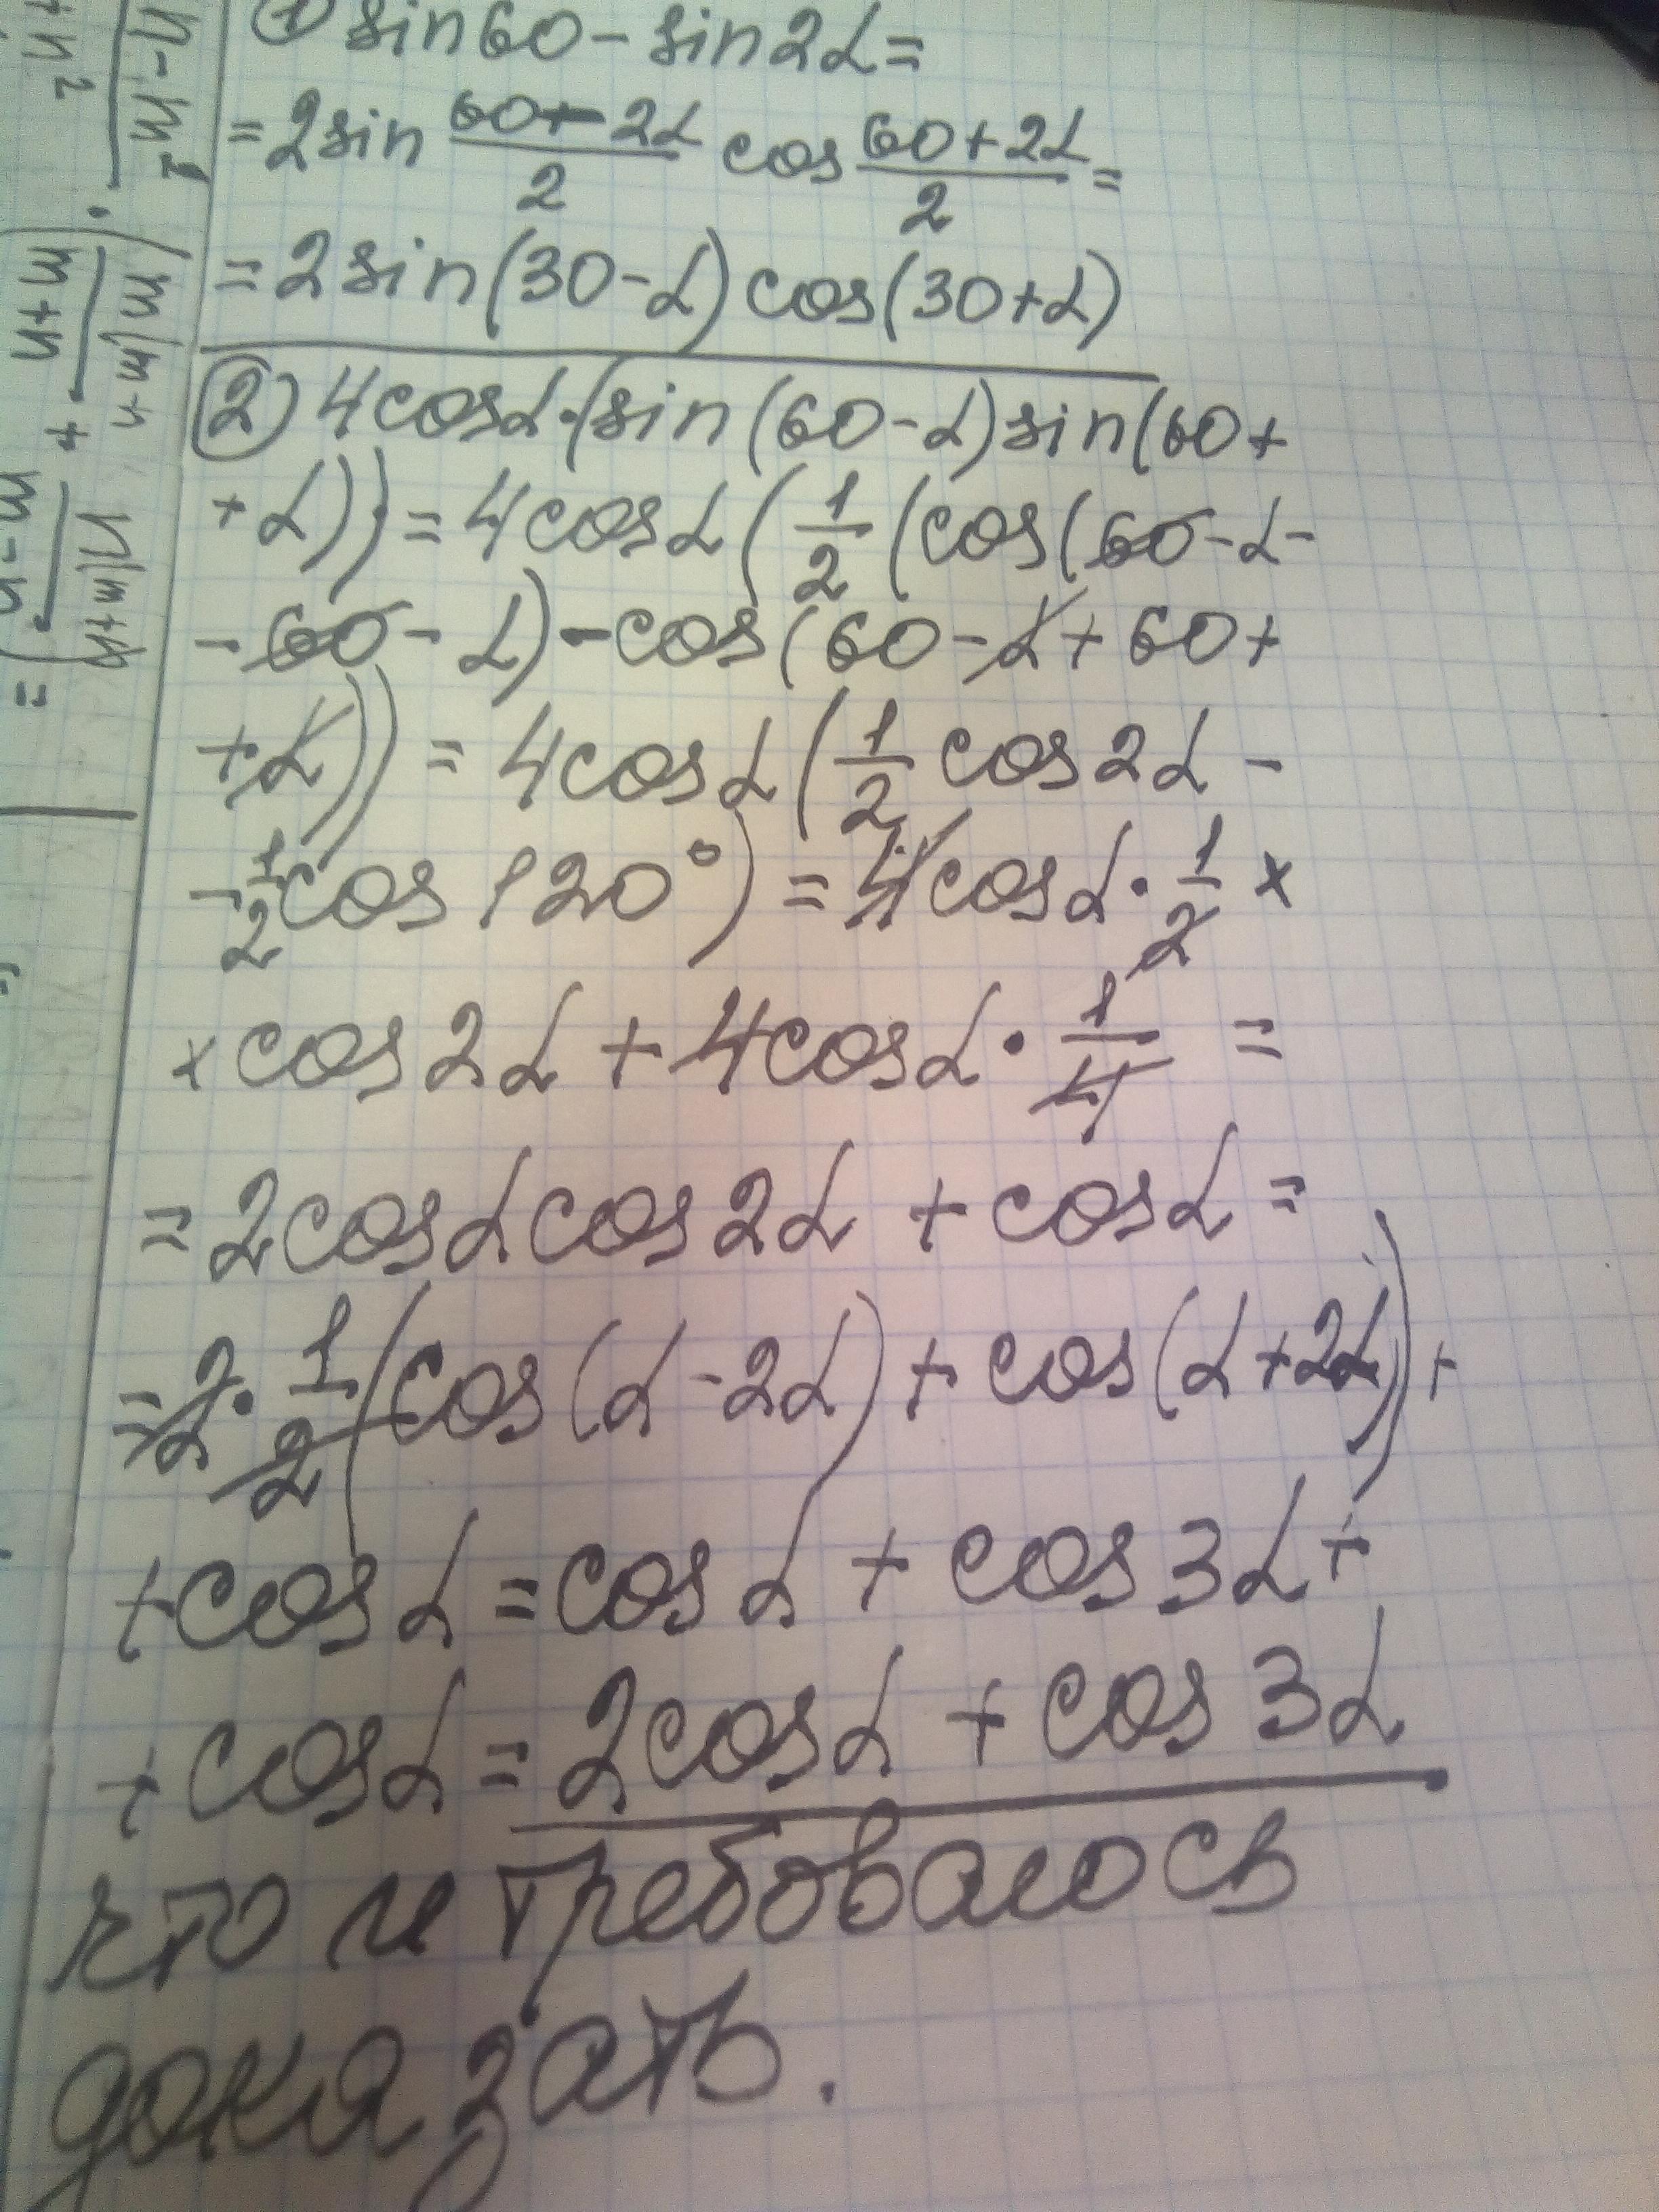 1) sin60 - sin2α =
= 2sin (60 - 2α)/2 cos (60 + 2α)/2 =
= 2sin(30 - α)cos(30 + α)
2) 4cosα·(sin(60 - α)sin(60 +
+ α)) = 4cosα(1/2(cos(60 - α -
- 60 - α) - cos(60 - α + 60 +
+ α)) = 4cosα(1/2 cos2α -
- 1/2 cos 120°) = 4cosα · 1/2 ×
× cos2α + 4cosα · 1/4 =
= 2cosα cos2α + cosα =
= 2 · 1/2 (cos(α - 2α) + cos(α + 2α)) +
+ cosα = cosα + cos3α +
+ cosα = 2cosα + cos3α
что и требовалось
доказать.